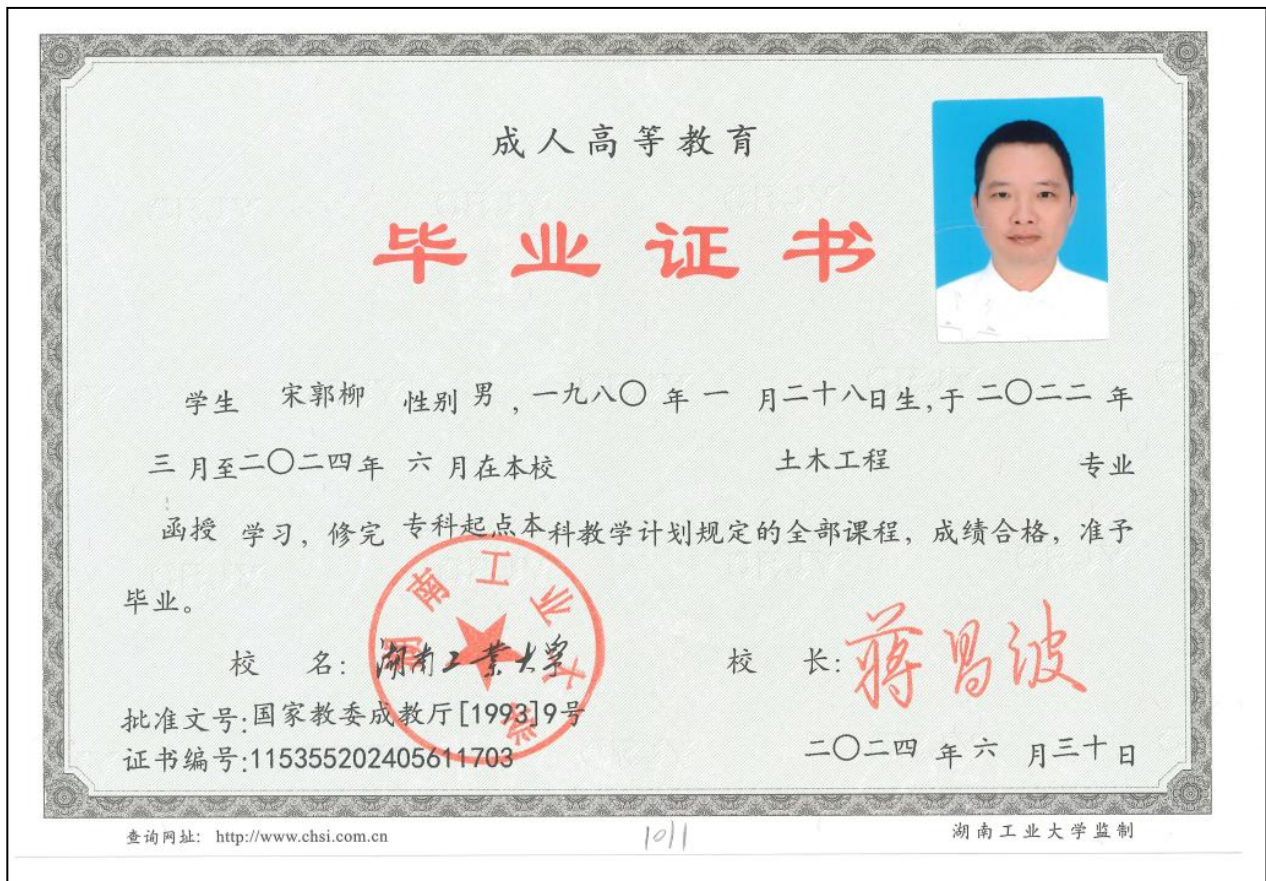 成人高等教育
毕业证书
学生 宋郭柳 性别 男 , 一九八〇 年 一 月二十八日生,于 二〇二二 年
三 月至二〇二四年 六 月在本校 土木工程 专业
函授 学习，修完 专科起点本科教学计划规定的全部课程，成绩合格，准予
毕业。
湖南工业大学
校 名: 湖南工業大学 校 长: 蒋昌波
批准文号:国家教委成教厅[1993]9号
证书编号:115355202405611703 二〇二四 年 六 月三十日
查询网址: http://www.chsi.com.cn 1011 湖南工业大学监制